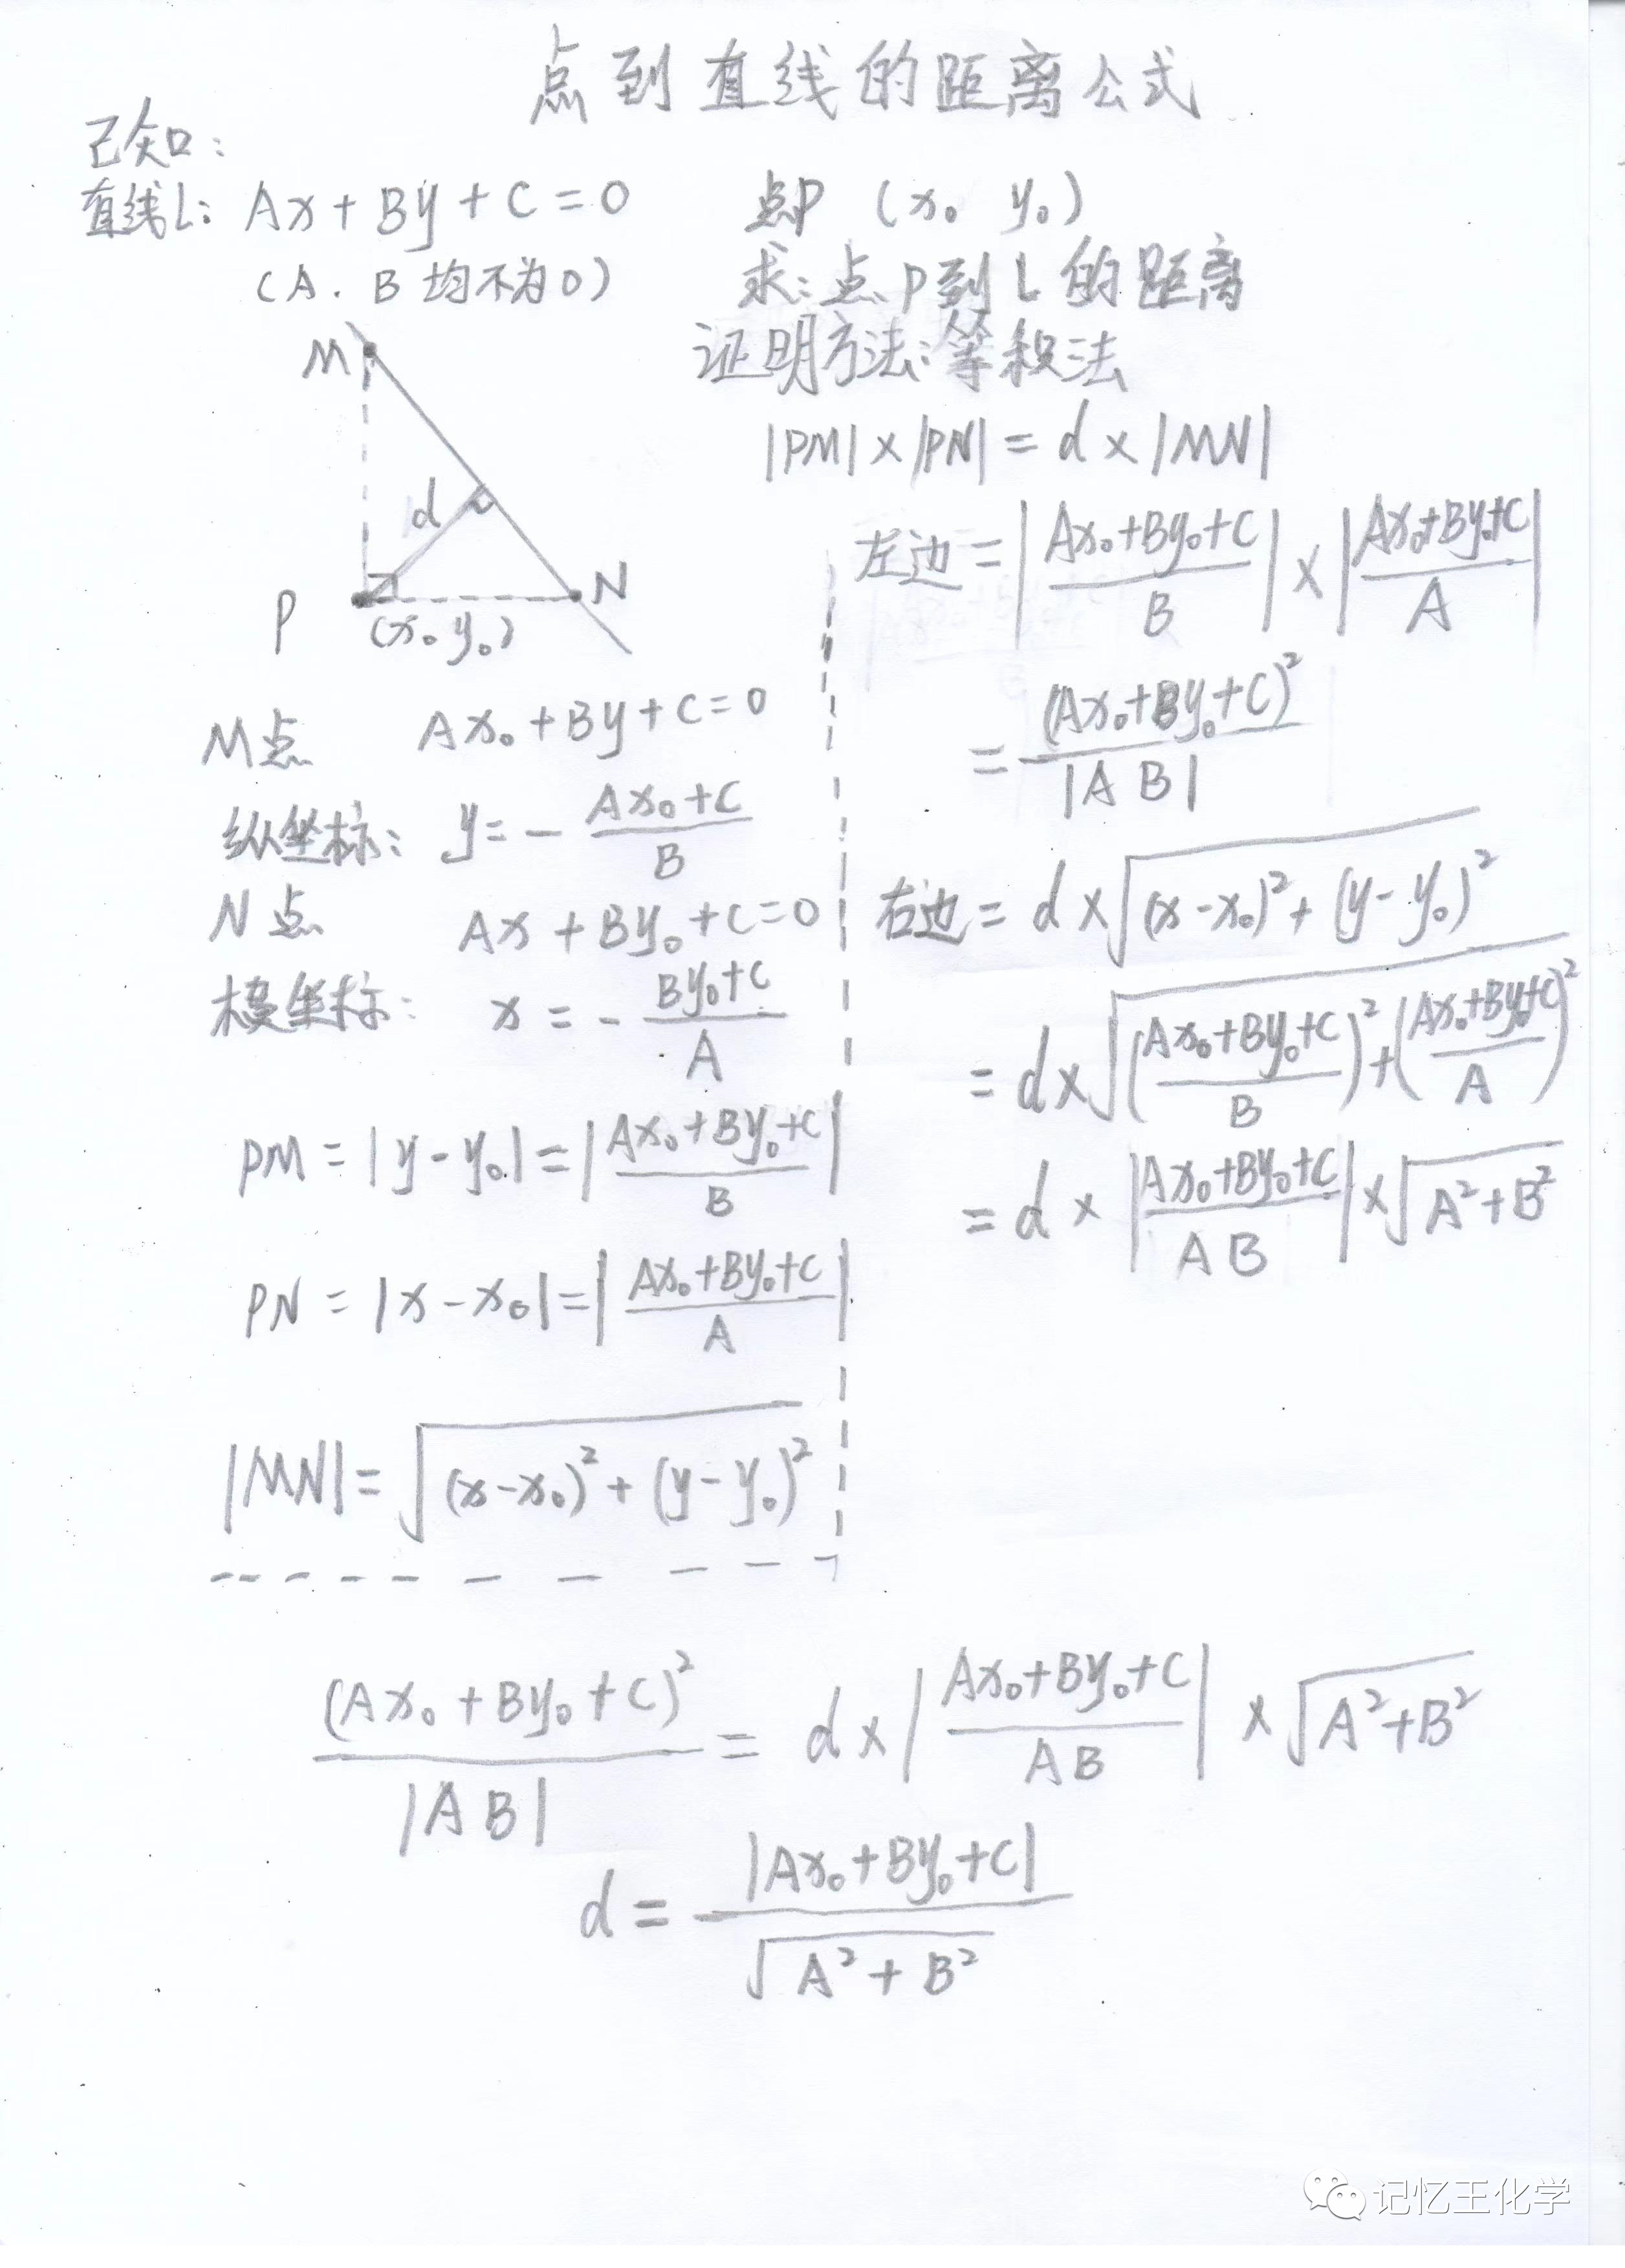 点到直线的距离公式
已知:
直线L: Ax+By+C=0 点P (x₀ y₀)
(A. B 均不为0) 求:点P到L的距离
证明方法:等积法
|PM|×|PN|=d×|MN|
M
d
P
N
(x₀ y₀)
M点 Ax₀+By+C=0
纵坐标: y=-(Ax₀+C)/B
N点 Ax+By₀+C=0
横坐标: x=-(By₀+C)/A
PM=|y-y₀|=|(Ax₀+By₀+C)/B|
PN=|x-x₀|=|(Ax₀+By₀+C)/A|
|MN|=√((x-x₀)²+(y-y₀)²)
左边=|(Ax₀+By₀+C)/B|×|(Ax₀+By₀+C)/A|
=(Ax₀+By₀+C)²/|AB|
右边=d×√((x-x₀)²+(y-y₀)²)
=d×√(((Ax₀+By₀+C)/B)²+((Ax₀+By₀+C)/A)²)
=d×|(Ax₀+By₀+C)/AB|×√(A²+B²)
(Ax₀+By₀+C)²/|AB|=d×|(Ax₀+By₀+C)/AB|×√(A²+B²)
d=|Ax₀+By₀+C|/√(A²+B²)
记忆王化学